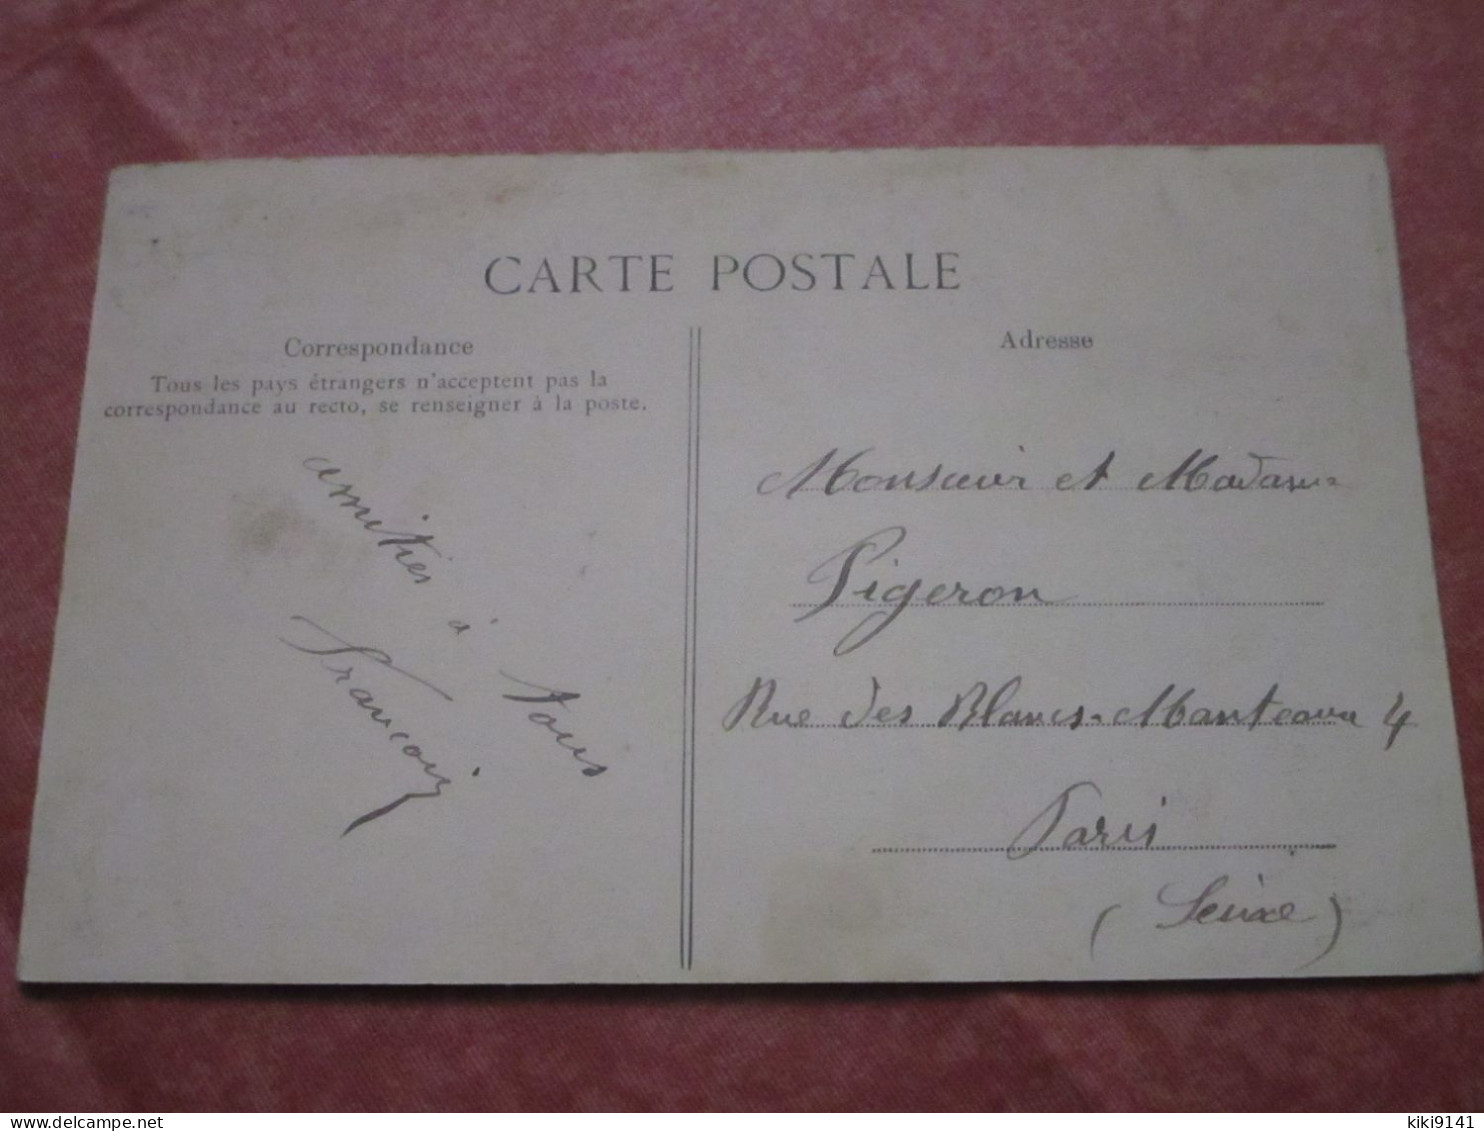 CARTE POSTALE
Correspondance
Tous les pays étrangers n'acceptent pas la
correspondance au recto, se renseigner à la poste.
amitiés à tous
François
Adresse
Monsieur et Madame
Pigeron
Rue des Blancs-Manteaux 4
Paris
(Seine)
delcampe.net
kiki9141